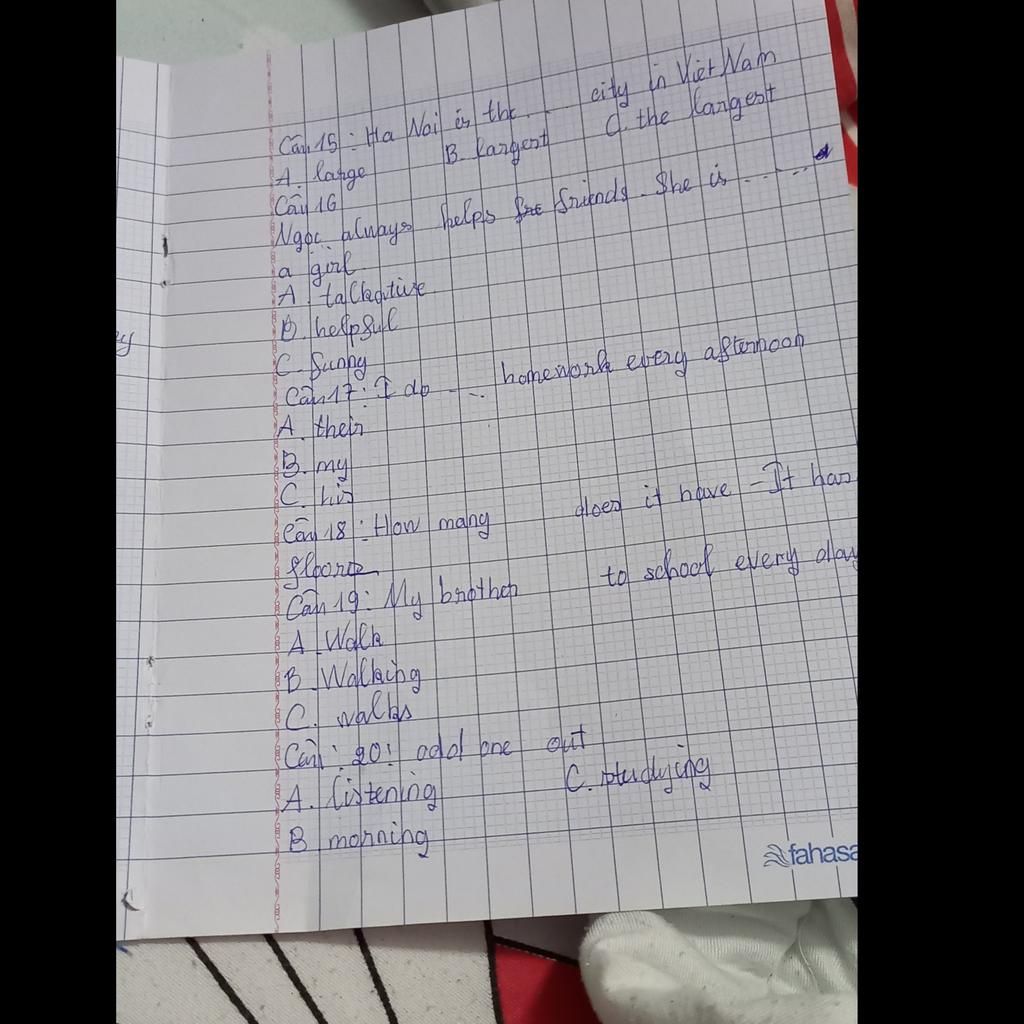 Câu 15: Ha Noi is the... city in Việt Nam
A. large B. largest C. the largest
Câu 16
Ngọc always helps friends. She is ......
a girl
A. talkative
B. helpful
C. funny
Câu 17: I do .... homework every afternoon
A. their
B. my
C. his
Câu 18: How many does it have - It has
floors
Câu 19: My brother to school every day
A Walk
B. Walking
C. walks
Câu: 20: odd one out
A. listening C. studying
B morning
fahasa